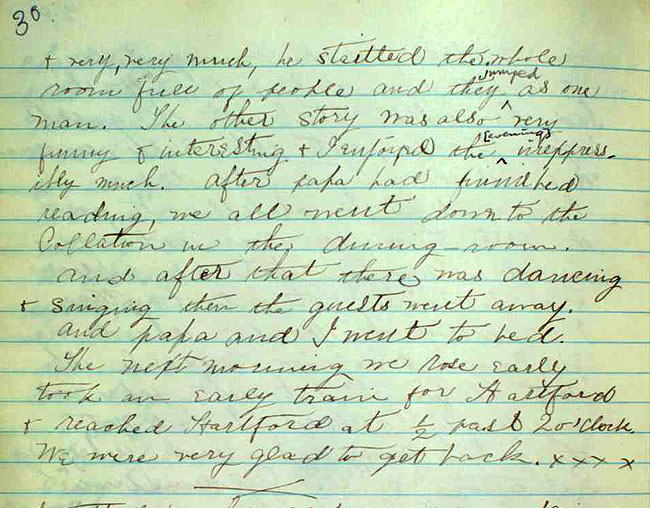 30
& very, very much, he startled the whole
room full of people and they jumped as one
man. The other story was also very
funny & interesting & I enjoyed the evening inexpress-
ibly much. After papa had finnished
reading, we all went down to the
Collation in the dining-room.
and after that there was dancing
& singing then the guests went away.
and papa and I went to bed.
The next morning we rose early
took an early train for Hartford
& reached Hartford at ½ past 2 o'clock.
We were very glad to get back. x x x x